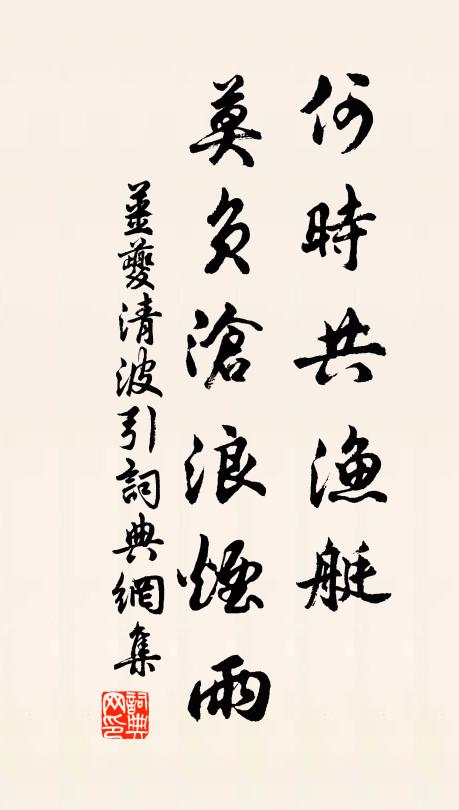 何時共漁艇
莫負滄浪煙雨
姜夔清波引詞典網集
詞典网印